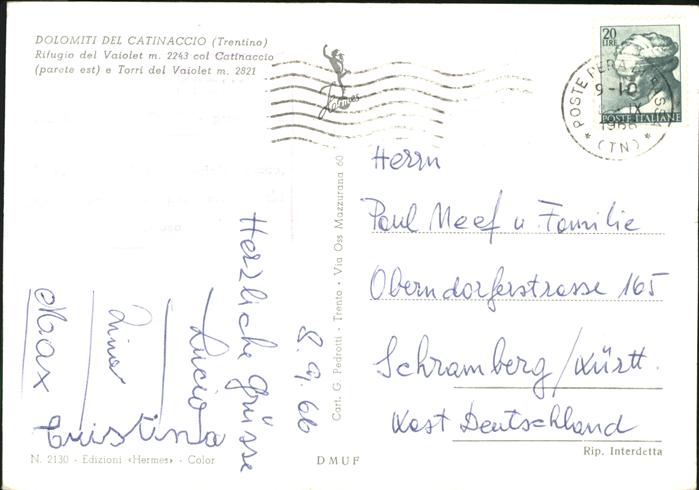 DOLOMITI DEL CATINACCIO (Trentino)
Rifugio del Vaiolet m. 2243 col Catinaccio
(parete est) e Torri del Vaiolet m. 2821
20
LIRE
POSTE ITALIANE
POSTE PERA
9-10
IX
1966
* (TN) *
Hermes
Herrn
Paul Neef u. Familie
Oberndorferstrasse 165
Schramberg/Württ.
West Deutschland
Rip. Interdetta
Cart. G. Pedrotti - Trento • Via Oss Mazzurana 60
8.9.66
Herzliche Grüsse
Lucio
Lina
Max
Cristina
N. 2130 - Edizioni «Hermes» - Color
DMUF